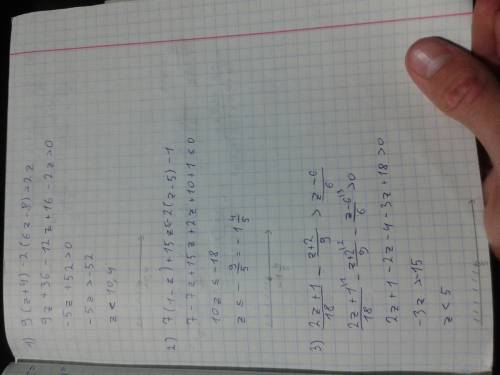 1) 9(z+4)-2(6z-8)>2z
9z+36-12z+16-2z>0
-5z+52>0
-5z>-52
z<10,4
2) 7(1-z)+15z≤2(z-5)-1
7-7z+15z+2z+10+1≤0
10z≤-18
z≤-9/5=-1 4/5
3) (2z+1)/18 - (z+2)/9 > (z-6)/6
(2z+1)/18 - (z+2)/9 - (z-6)/6 >0
2z+1-2z-4-3z+18>0
-3z>-15
z<5